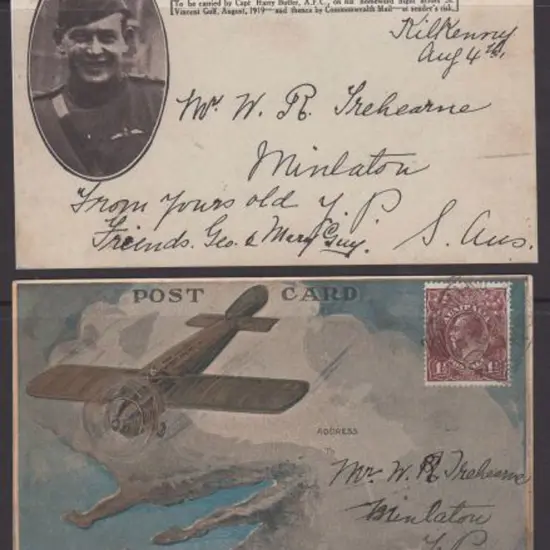 To be carried by Capt Harry Butler, A.F.C., on his homeward flight across St.
Vincent Gulf, August, 1919—and thence by Commonwealth Mail—at sender's risk.
Kilkenny
Aug 4th,
Mr W. R. Trehearne
Minlaton
"From Yours old Y. P.
Friends. Geo. & Mary Guy. S. Aus.
POST CARD
AUSTRALIA
ADDRESS
To
Mr. W. R Trehearne
Minlaton
Y P